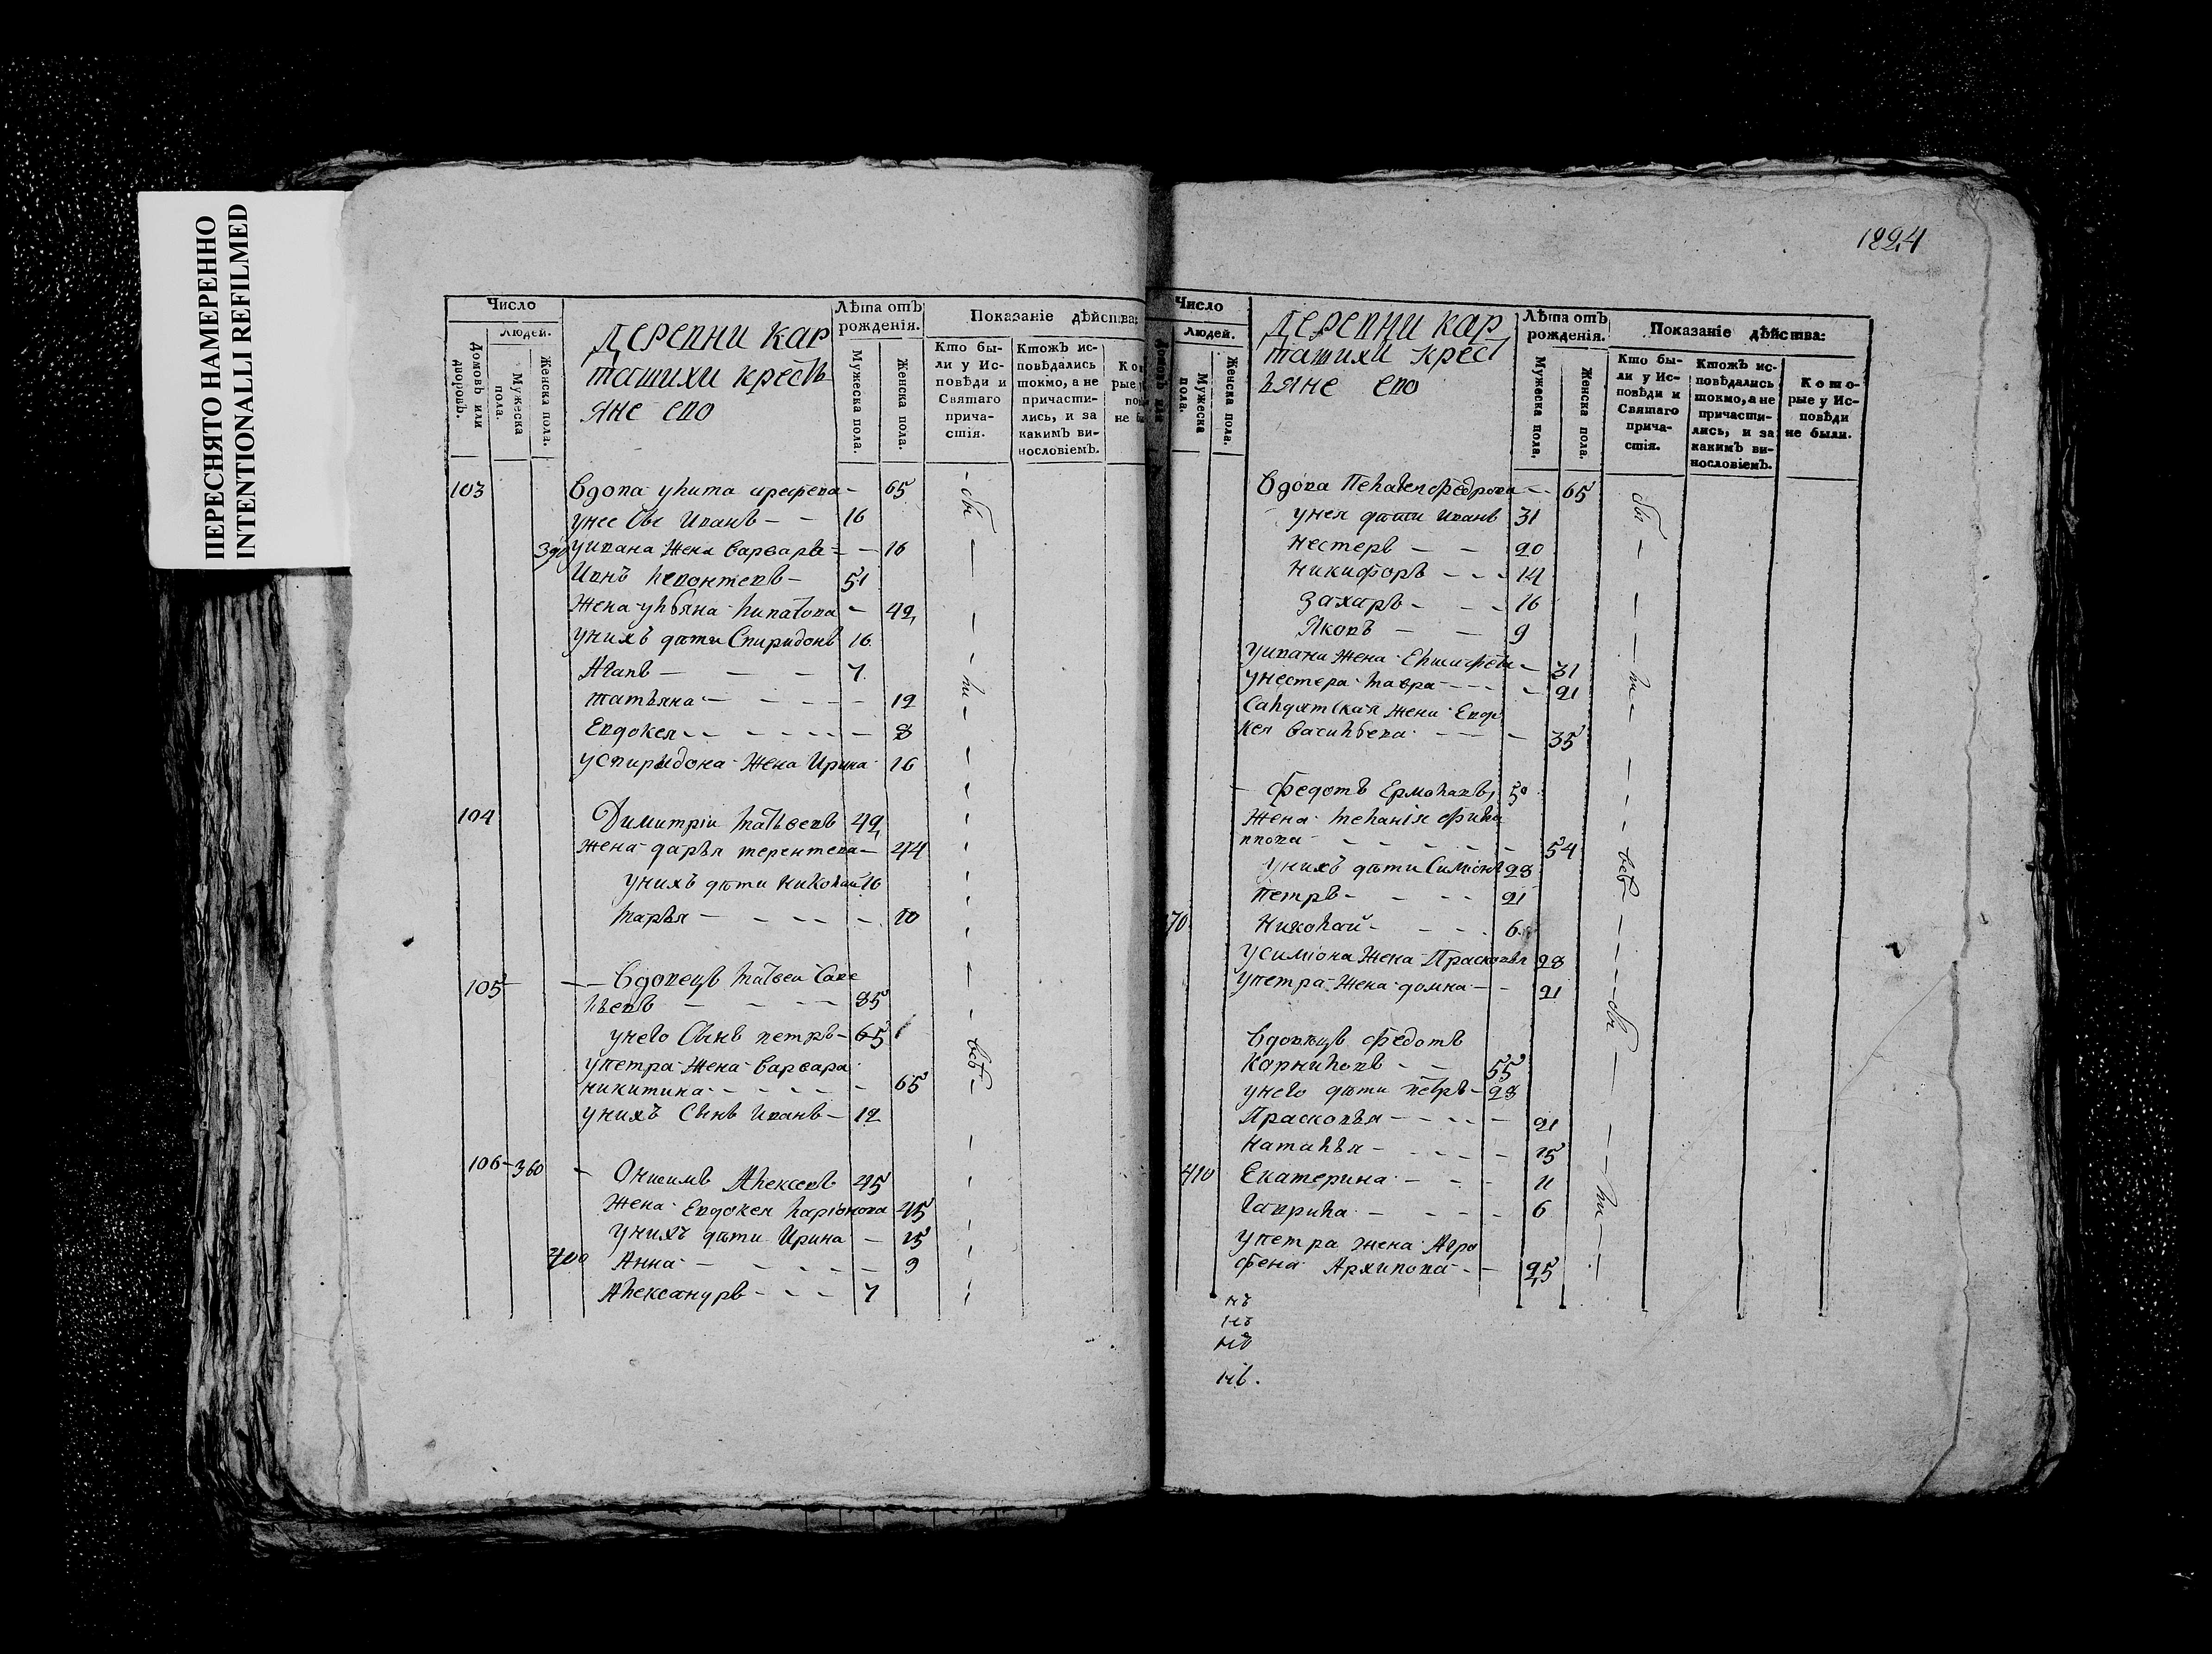 ПЕРЕСНЯТО НАМЕРЕННО
INTENTIONALLI REFILMED
Число
Людей.
Домовъ или дворовъ.
Мужеска пола.
Женска пола.
деревни кар
ташихи кресть
яне ево
Лѣта отъ рожденія.
Мужеска пола.
Женска пола.
Показаніе дѣйства:
Кто бы-
ли у Ис-
повѣди и
Святаго
прича-
стія.
Ктожъ ис-
повѣдались
токмо, а не
причасти-
лись, и за
какимъ ви-
нословіемъ.
103 вдова улита арефева - 65
унее 16
390 уивана жена варвара - - 16
леонтевъ - 51
жена ульяна липатова - 42
унихъ дѣти Спиридонъ 16
Агапъ - - - 7
татьяна - - - - 12
Евдокея - - - - 8
успиридона жена Ирина 16
104 Димитріи матвеевъ 42
жена дарья терентева - 44
унихъ дѣти николаи 16
марья - - - - 10
105 - вдовецъ матвеи Саве
льевъ - - - 85
унего сынъ петръ - 65
упетра жена варвара
никитина - - - - 65
унихъ сынъ иванъ - 12
106 - 360 - Онисимъ Алексеевъ 45
жена Евдокея ларіонова 45
унихъ дѣти Ирина - 15
400 Анна - - - - 9
Александръ - - - 7
1824
Число
Людей.
Мужеска пола.
Женска пола.
деревни кар
ташихи крест
ьяне ево
Лѣта отъ рожденія.
Мужеска пола.
Женска пола.
Показаніе дѣйства:
Кто бы-
ли у Ис-
повѣди и
Святаго
прича-
стія.
Ктожъ ис-
повѣдались
токмо, а не
причасти-
лись, и за
какимъ ви-
нословіемъ.
Кото-
рые у Ис-
повѣди
не были.
вдова Пелагея федрова - 65
унея дѣти иванъ 31
нестеръ - - 20
никифоръ - - - 14
захаръ - - - 16
Яковъ - - 9
уивана жена - 31
унестера мавра - - - 21
Салдатская жена Евдо
кея васильева - - - 35
- федотъ Ермолаевъ 50
жена меланія фили
ппова - - - - 54
унихъ дѣти Симіонъ 28
петръ - - - - 21
70 николаи - - - 6
усиміона жена Прасковья 28
упетра жена домна - - 21
вдовецъ федотъ
корниловъ - - 55
унего дѣти петръ - 28
Прасковья - - - - 21
наталья - - - - 15
410 Екатерина - - - 11
гаврила - - - - 6
упетра жена Агра
фена Архипова - - 25
нъ
нъ
нъ
нъ.